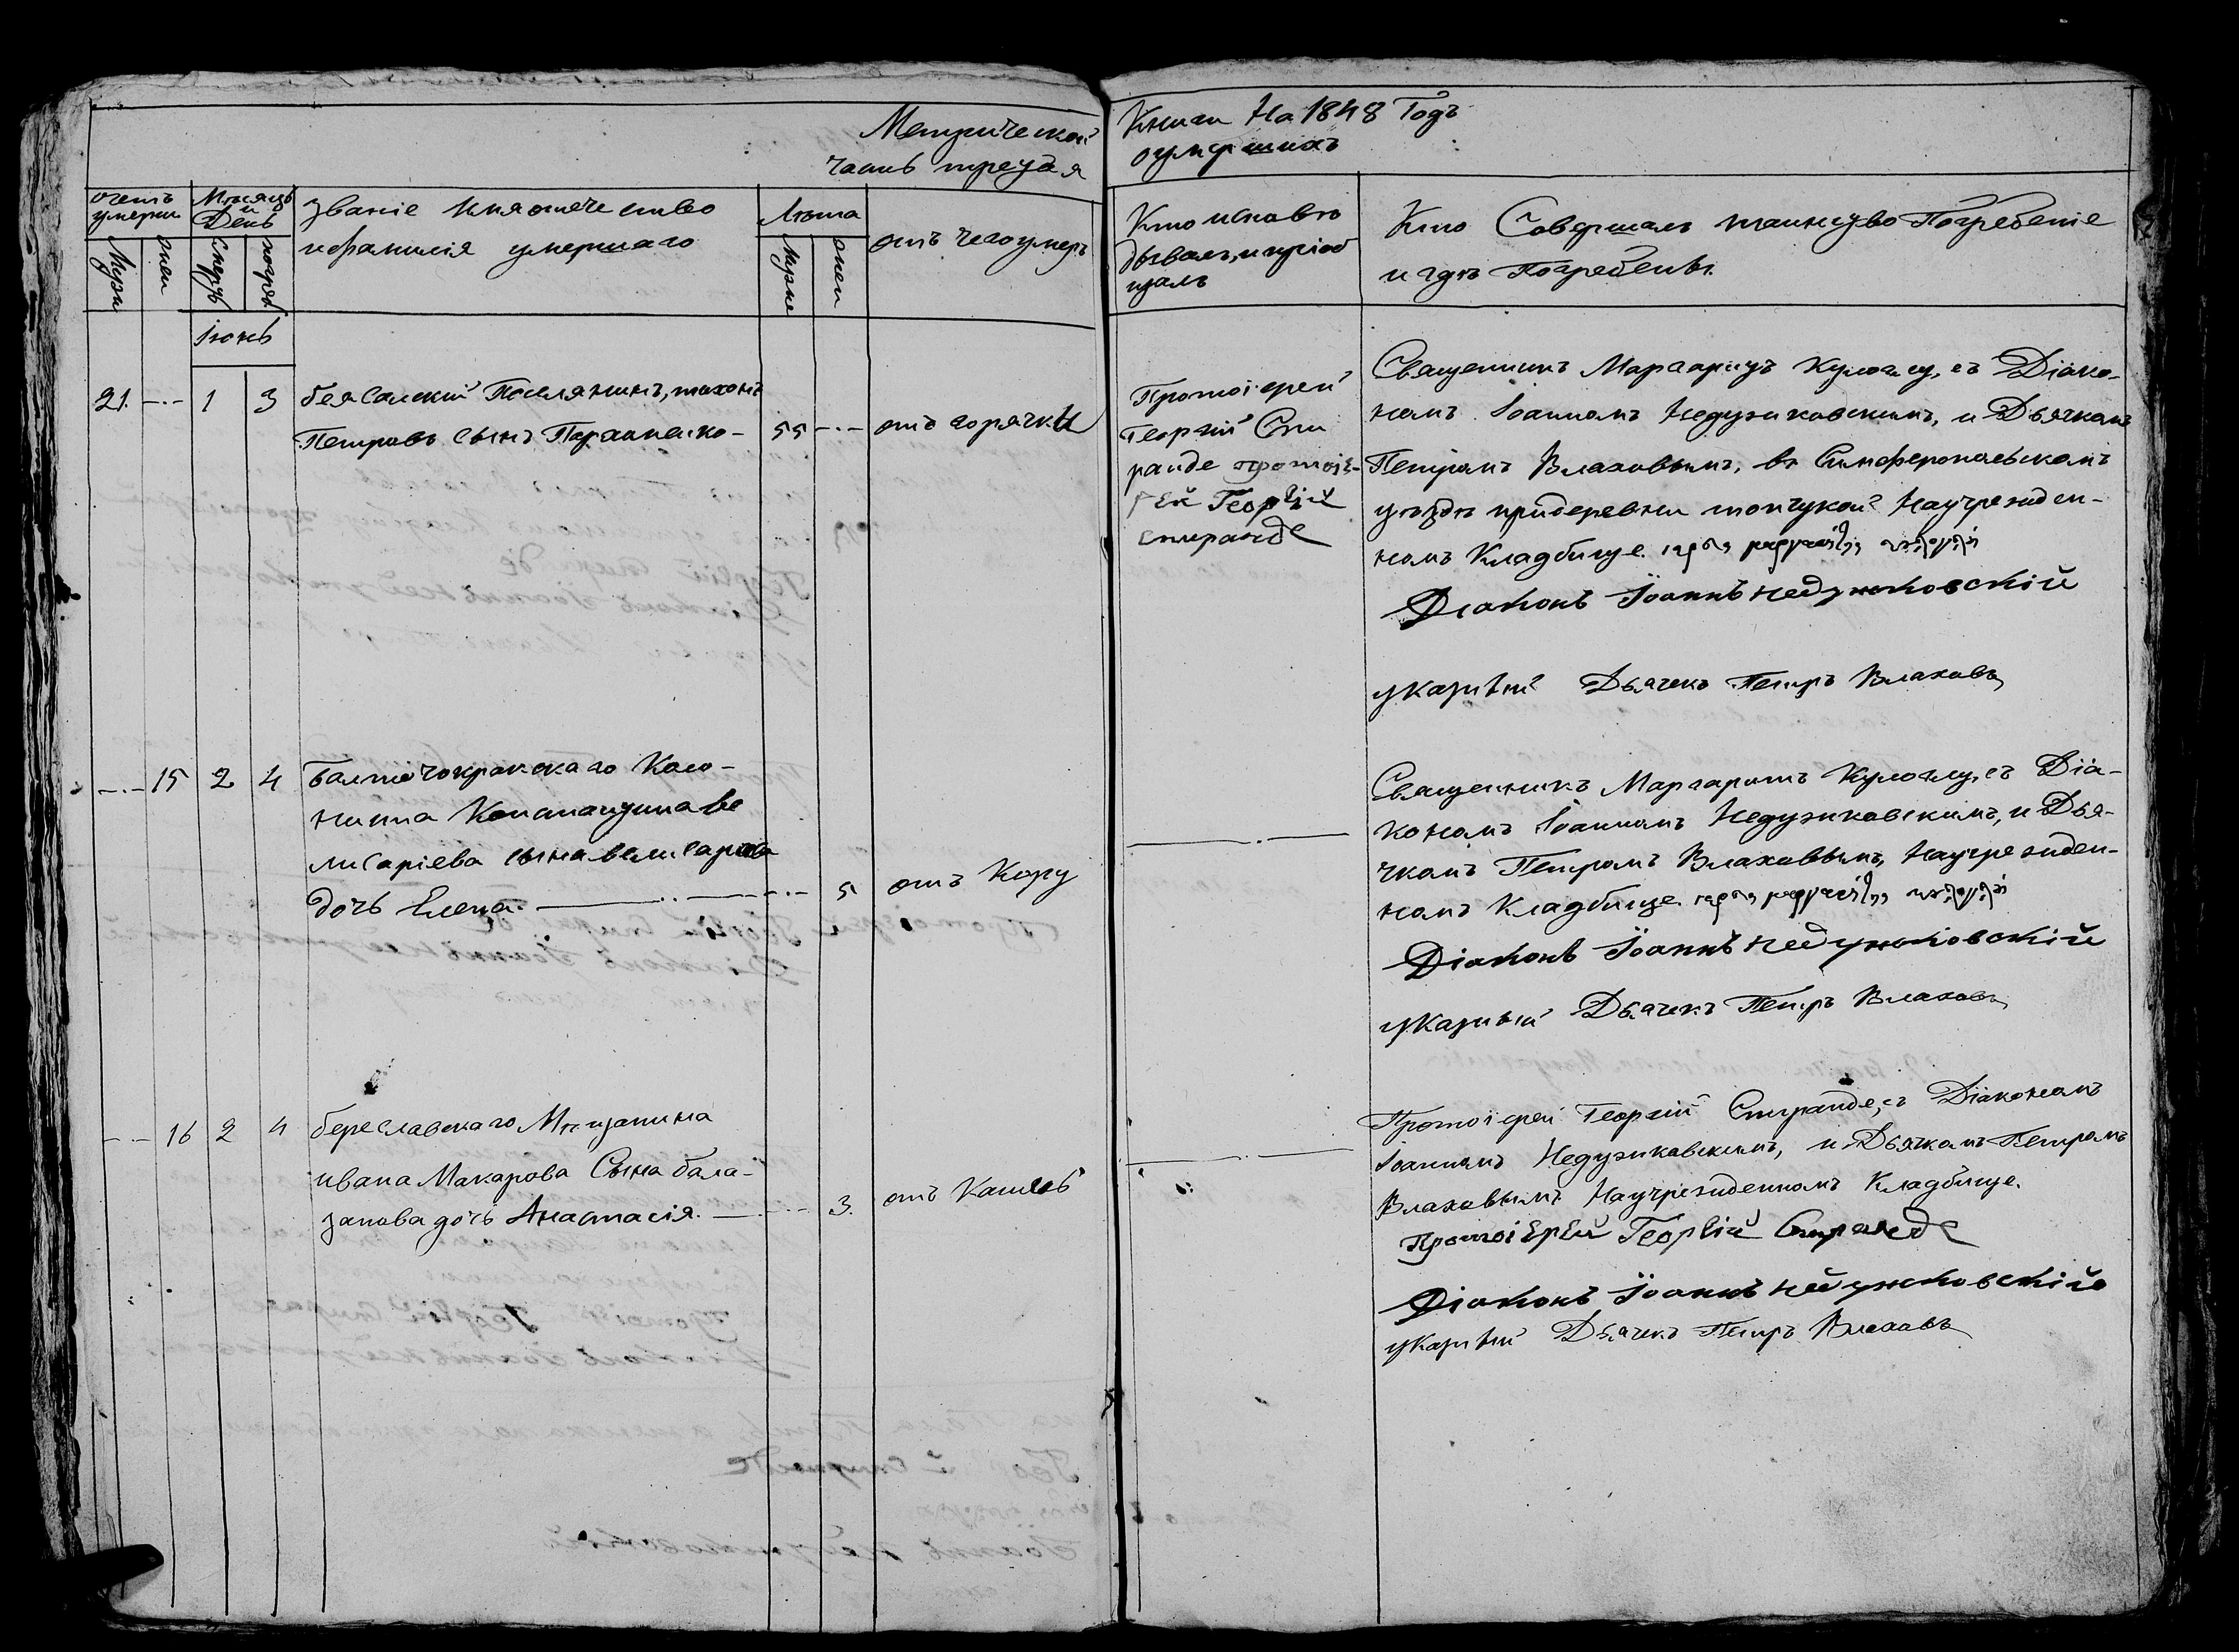 Метрической
часть третья
Книги На 1848 Годъ
оумершихъ
счетъ умерш
Мѣсяцъ и День
званіе имя отчество
и фамилія умершаго
Лѣта
отъ чего умеръ
Кто исповѣ
дывалъ, и пріоб
щалъ
Кто Совершалъ таинство Погребеніе
и гдѣ Погребены.
Мужи
жен
смерть
погреб
Мужие
жен
Іюнь
21. — 1 3
Поселянинъ, тихонъ
Петровъ сынъ Пархоменко —
55 —
отъ горячки
Протоіерей
Георгій Спи
ранде протоіе-
рей Георгій
спиранде
Священникъ Маргаритъ Кулоглу, съ Діако-
номъ Іоанномъ Недужиковскимъ, и Дьячкомъ
Петромъ Влаховымъ, въ Симферопольскомъ
уѣздѣ придеревни топчукой Научрежден-
номъ Кладбище.
Діаконъ Іоаннъ недужковскій
указный Дьячекъ Петръ Влаховъ
— 15 2 4
балточокракскаго Коло-
ниста Константина ве
лисаріева сына велисаріева
дочь Елена. —
5
отъ Кору
Священникъ Маргаритъ Кулоглу, съ Діа-
кономъ Іоанномъ Недужиковскимъ, и Дья-
чкомъ Петромъ Влаховымъ, Научрежден-
номъ Кладбище.
Діаконъ Іоаннъ недужковскій
указный Дьячекъ Петръ Влаховъ
— 16 2 4
береславскаго Мѣщанина
ивана Макарова Сына бала-
занова дочь Анастасія. —
3.
отъ Кашель
Протоіерей Георгій Спиранде, съ Діакономъ
Іоанномъ Недужиковскимъ, и Дьячкомъ Петромъ
Влаховымъ Научрежденномъ Кладбище.
Протоіерей Георгій Спиранде
Діаконъ Іоаннъ недужковскій
указный Дьячекъ Петръ Влаховъ